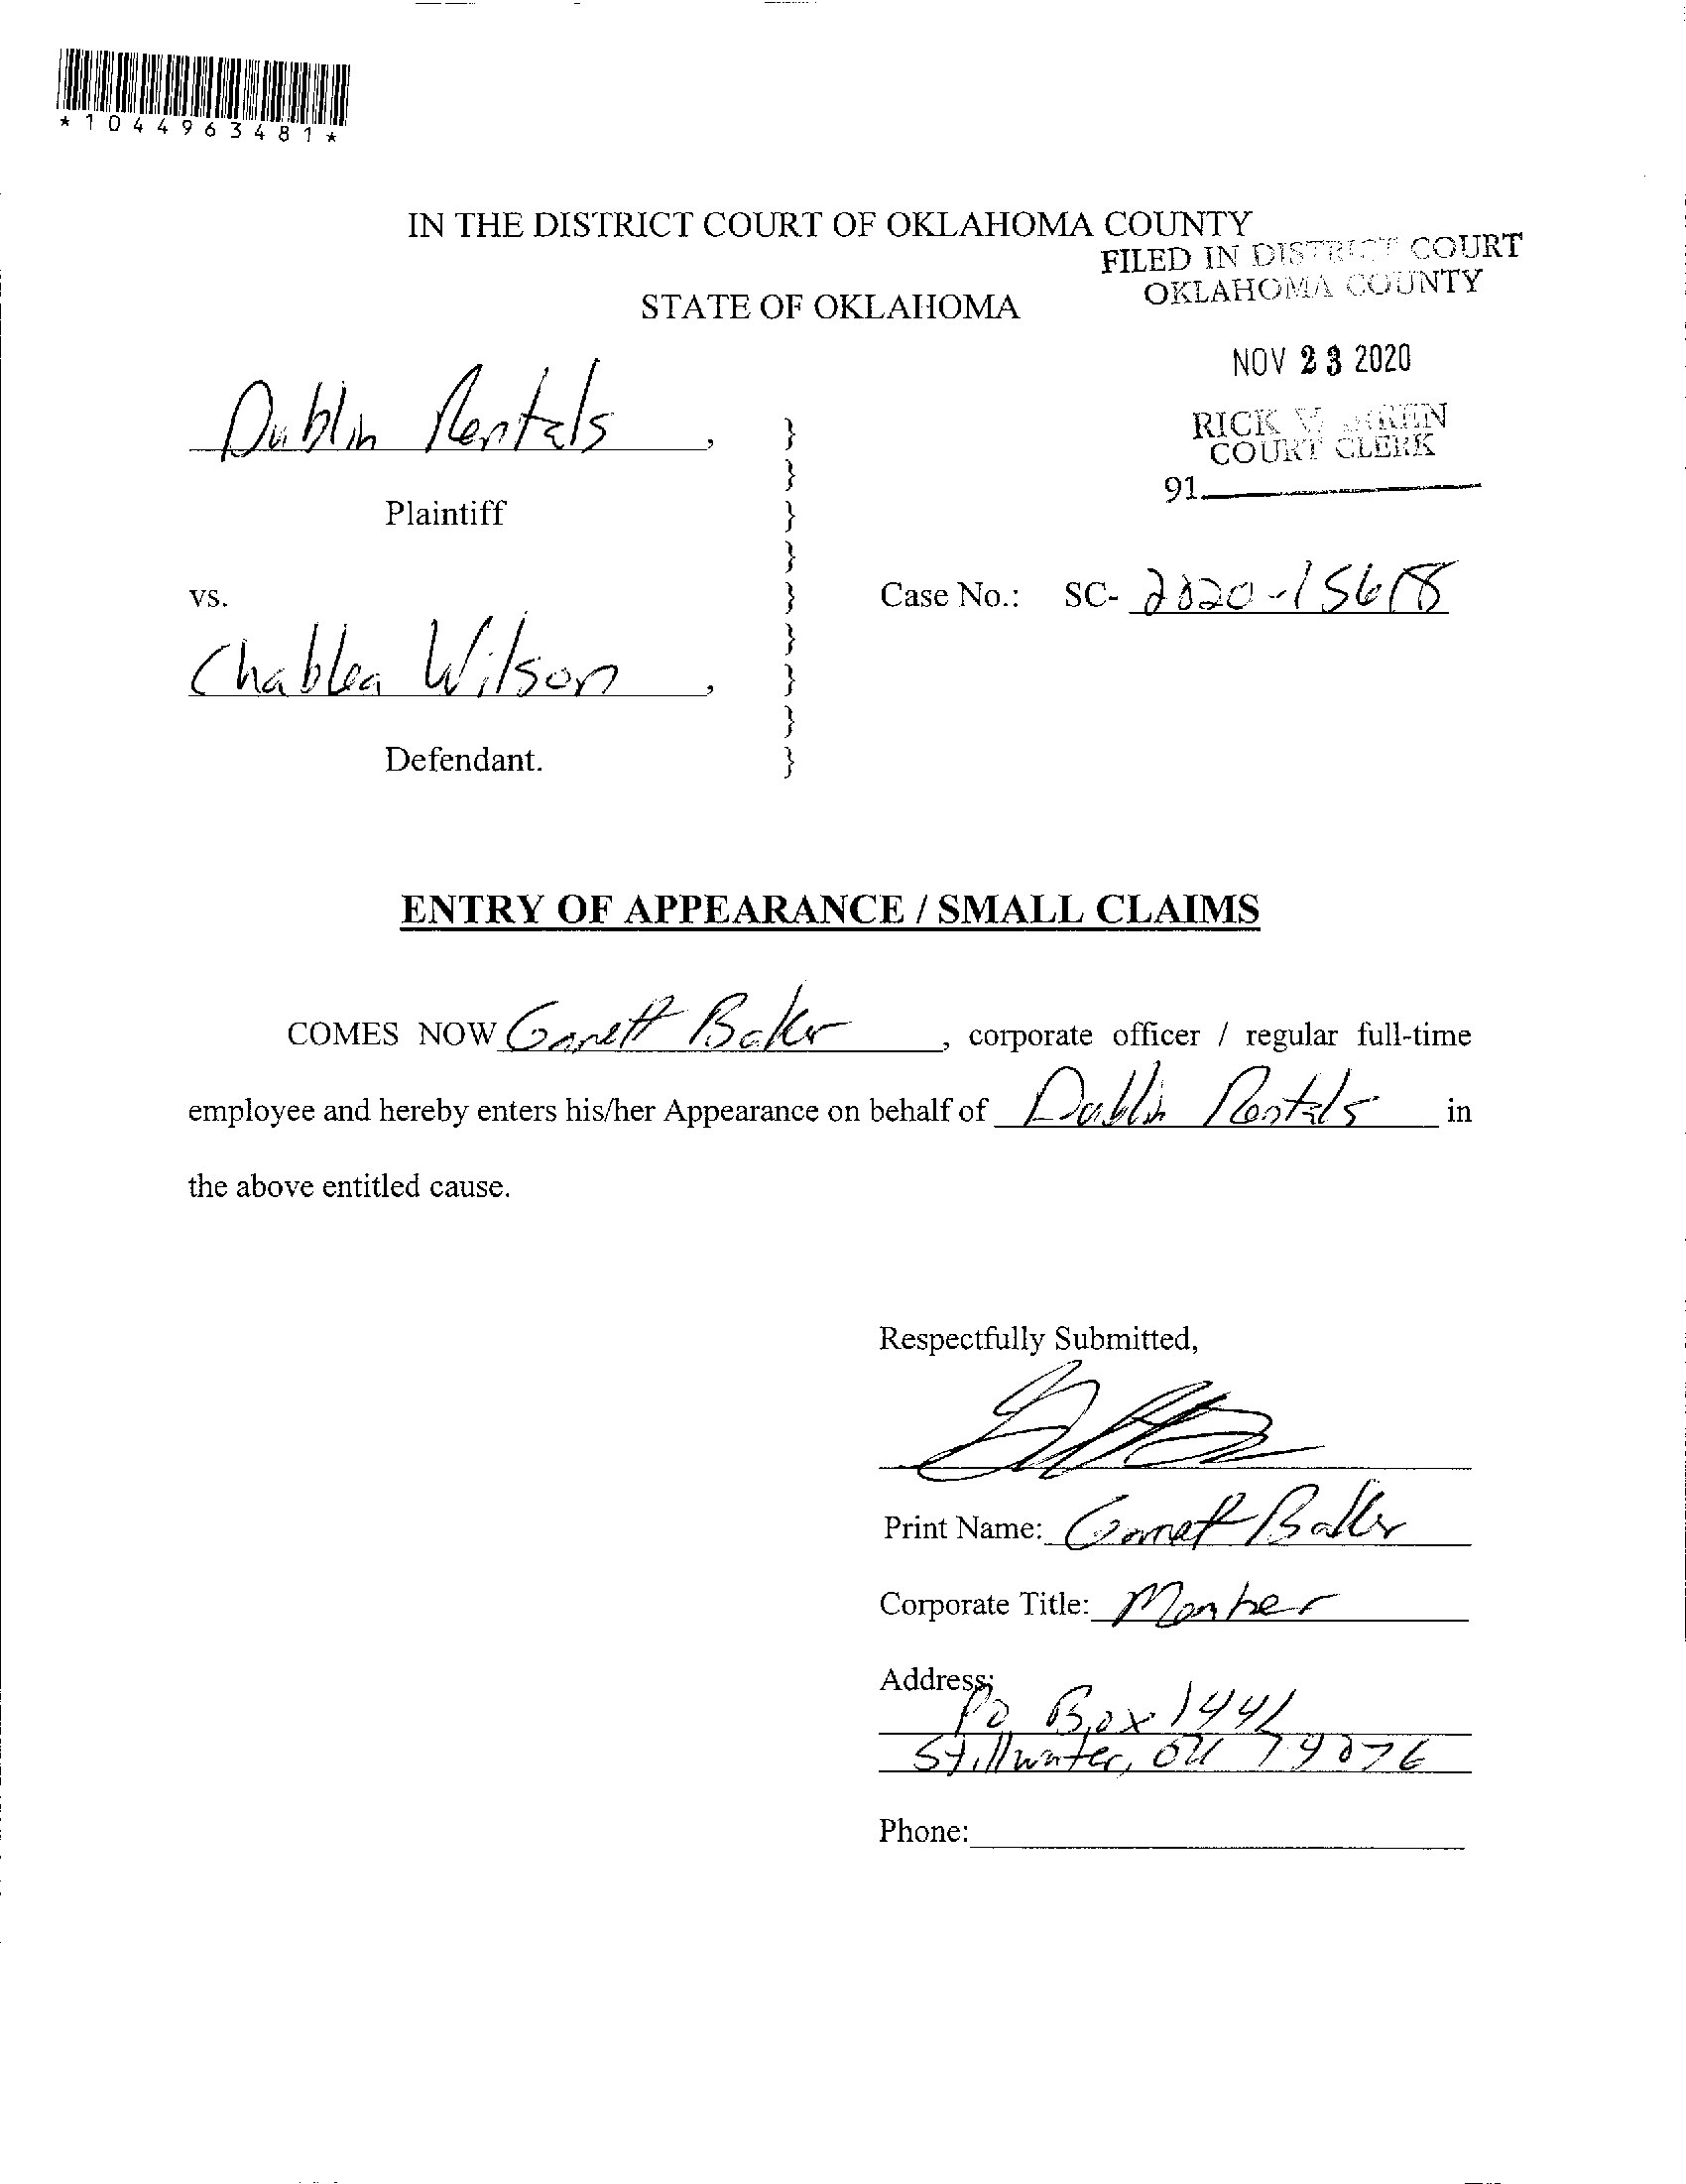 *1044963481*
IN THE DISTRICT COURT OF OKLAHOMA COUNTY
FILED IN DISTRICT COURT
OKLAHOMA COUNTY
STATE OF OKLAHOMA
NOV 23 2020
Dublin Rentals,
}
RICK WARREN
COURT CLERK
}
91
Plaintiff
}
}
vs.
}
Case No.: SC- 2020-15618
}
Chablea Wilson,
}
}
Defendant.
}
ENTRY OF APPEARANCE / SMALL CLAIMS
COMES NOW Garrett Baker, corporate officer / regular full-time
employee and hereby enters his/her Appearance on behalf of Dublin Rentals in
the above entitled cause.
Respectfully Submitted,
Print Name: Garrett Baker
Corporate Title: Member
Address:
PO Box 1441
Stillwater, OK 74076
Phone: